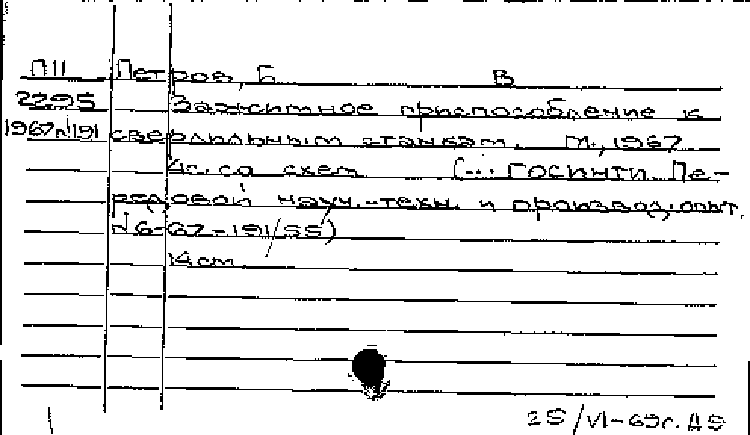 П11 Петров, Б В
2295 Зажимное приспособление к
1967 №191 сверлильным станкам. М., 1967
4с. со схем. (... ГОСИНТИ. Пе-
редовой науч.-техн. и производ. опыт.
№ 6-67-191/55)
14 см
25/VI-69г.